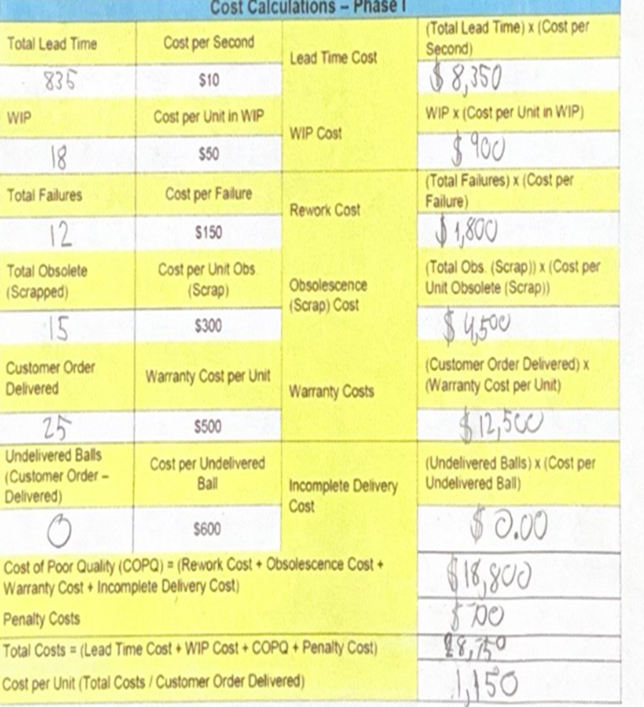 Cost Calculations – Phase I
Total Lead Time
Cost per Second
Lead Time Cost
(Total Lead Time) x (Cost per
Second)
835
$10
$ 8,350
WIP
Cost per Unit in WIP
WIP Cost
WIP x (Cost per Unit in WIP)
18
$50
$ 900
Total Failures
Cost per Failure
Rework Cost
(Total Failures) x (Cost per
Failure)
12
$150
$ 1,800
Total Obsolete
(Scrapped)
Cost per Unit Obs
(Scrap)
Obsolescence
(Scrap) Cost
(Total Obs. (Scrap)) x (Cost per
Unit Obsolete (Scrap))
15
$300
$ 4,500
Customer Order
Delivered
Warranty Cost per Unit
Warranty Costs
(Customer Order Delivered) x
(Warranty Cost per Unit)
25
$500
$ 12,500
Undelivered Balls
(Customer Order –
Delivered)
Cost per Undelivered
Ball
Incomplete Delivery
Cost
(Undelivered Balls) x (Cost per
Undelivered Ball)
0
$600
$ 0.00
Cost of Poor Quality (COPQ) = (Rework Cost + Obsolescence Cost +
Warranty Cost + Incomplete Delivery Cost)
$18,800
Penalty Costs
$ 700
Total Costs = (Lead Time Cost + WIP Cost + COPQ + Penalty Cost)
28,750
Cost per Unit (Total Costs / Customer Order Delivered)
1,150